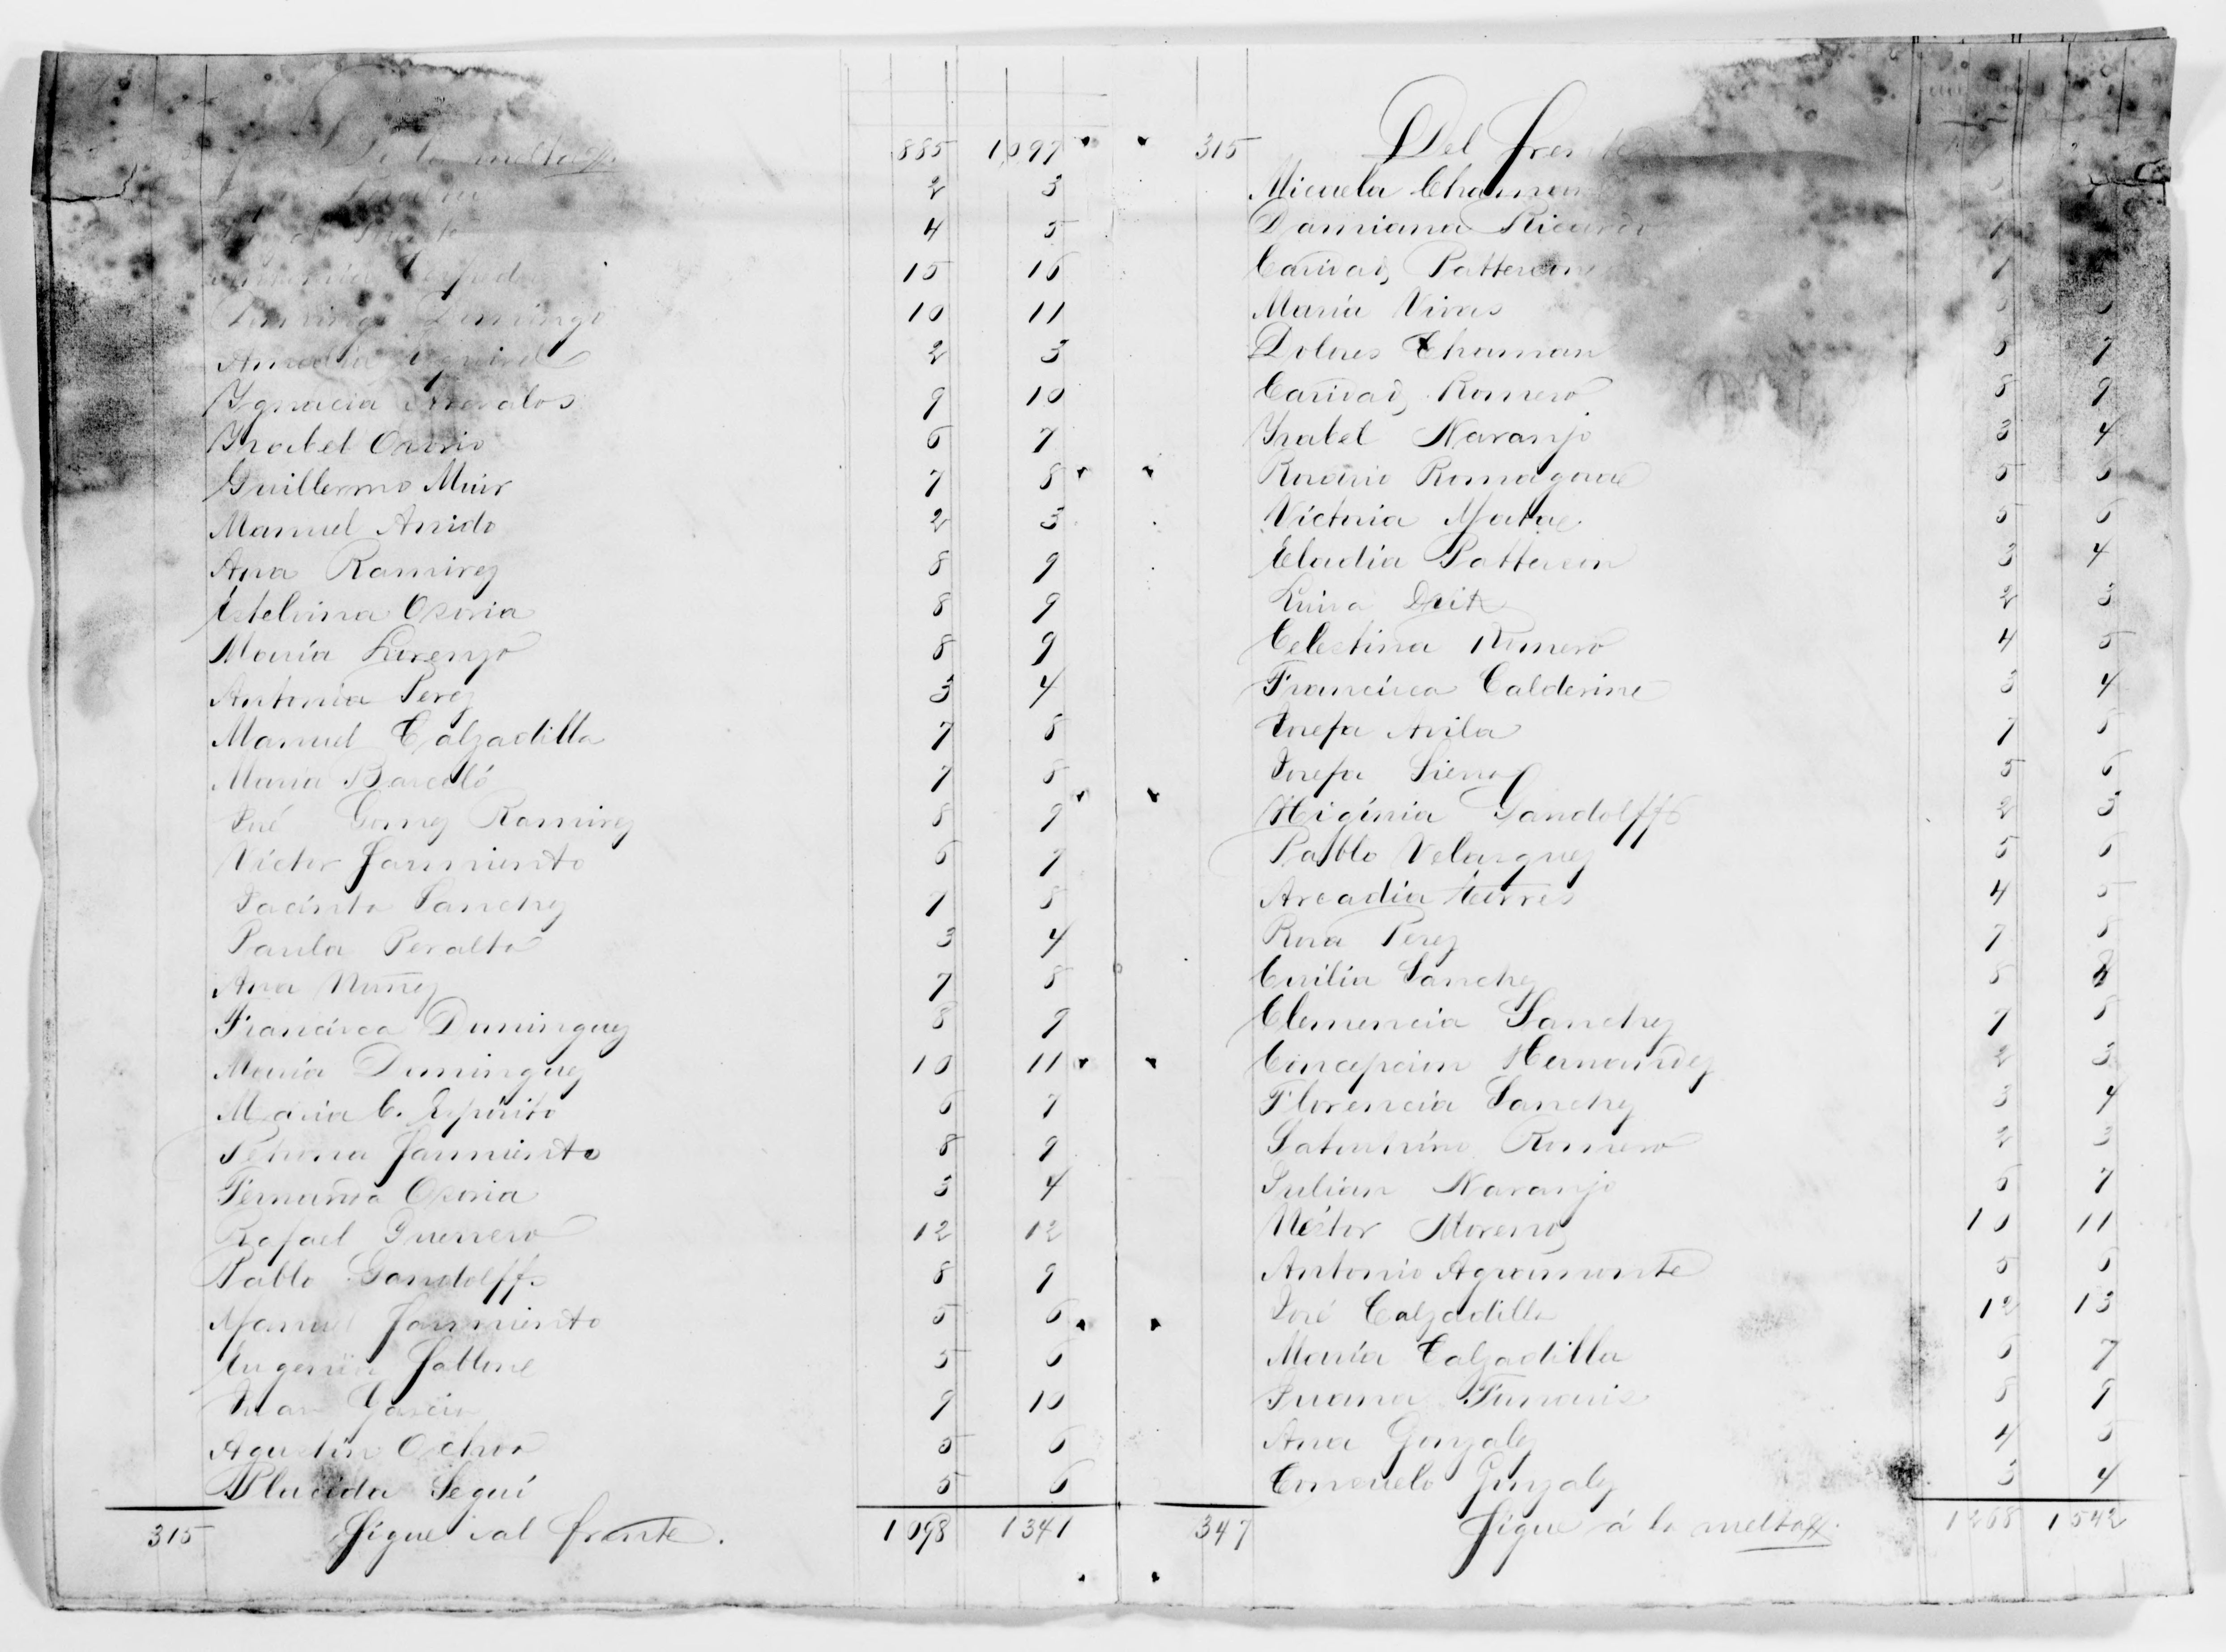 De la vuelta 885 1097
2 3
4 5
15 16
Domingo 10 11
Amadia 2 3
Ygnacia Arevalos 9 10
Ysabel Osorio 6 7
Guillermo Muir 7 8
Manuel Anido 2 3
Ana Ramirez 8 9
Estelvina Osoria 8 9
María Lorenzo 8 9
Antonia Perez 3 4
Manuel Calzadilla 7 8
Maria Barceló 7 8
José Gomez Ramirez 8 9
Víctor Sarmiento 6 7
Jacinto Sanchez 7 8
Paula Peralta 3 4
Ana Nuñez 7 8
Francisca Dominguez 8 9
María Dominguez 10 11
Maria C. Espírito 6 7
Petrona Sarmiento 8 9
Fernanda Osoria 3 4
Rafael Guerrero 12 12
Pablo Gandolffo 8 9
Manuel Sarmiento 5 6
Eugenia 5 6
Juan Garcia 9 10
Agustin Ochoa 5 6
Placida Seguí 5 6
315 Sigue al frente. 1098 1341
315 Del frente
Micaela Chaman
Damiana Ricardo
Caridad Patterson
María Vivas
Dolores Chaman 7
Caridad Romero 8 9
Ysabel Naranjo 3 4
Rosario 5 6
Victoria Matae 5 6
Eladia Patterson 3 4
Luisa 2 3
Celestina Romero 4 5
Francisca Calderine 3 4
Josefa Avila 7 8
Josefa Sierra 5 6
Higínia Gandolffo 2 3
Pablo Velasquez 5 6
Arcadia Torres 4 5
Rosa Perez 7 8
Emilia Sanchez
Clemencia Sanchez 7 8
Concepcion Hernandez 2 3
Florencia Sanchez 3 4
Saturnino Romero 2 3
Julian Naranjo 6 7
Néstor Moreno 10 11
Antonio Agramonte 5 6
José Calzadilla 12 13
María Calzadilla 6 7
Juana 8 9
Ana Gonzalez 4 5
Consuelo Gonzalez 3 4
347 Sigue á la vuelta 1268 1542